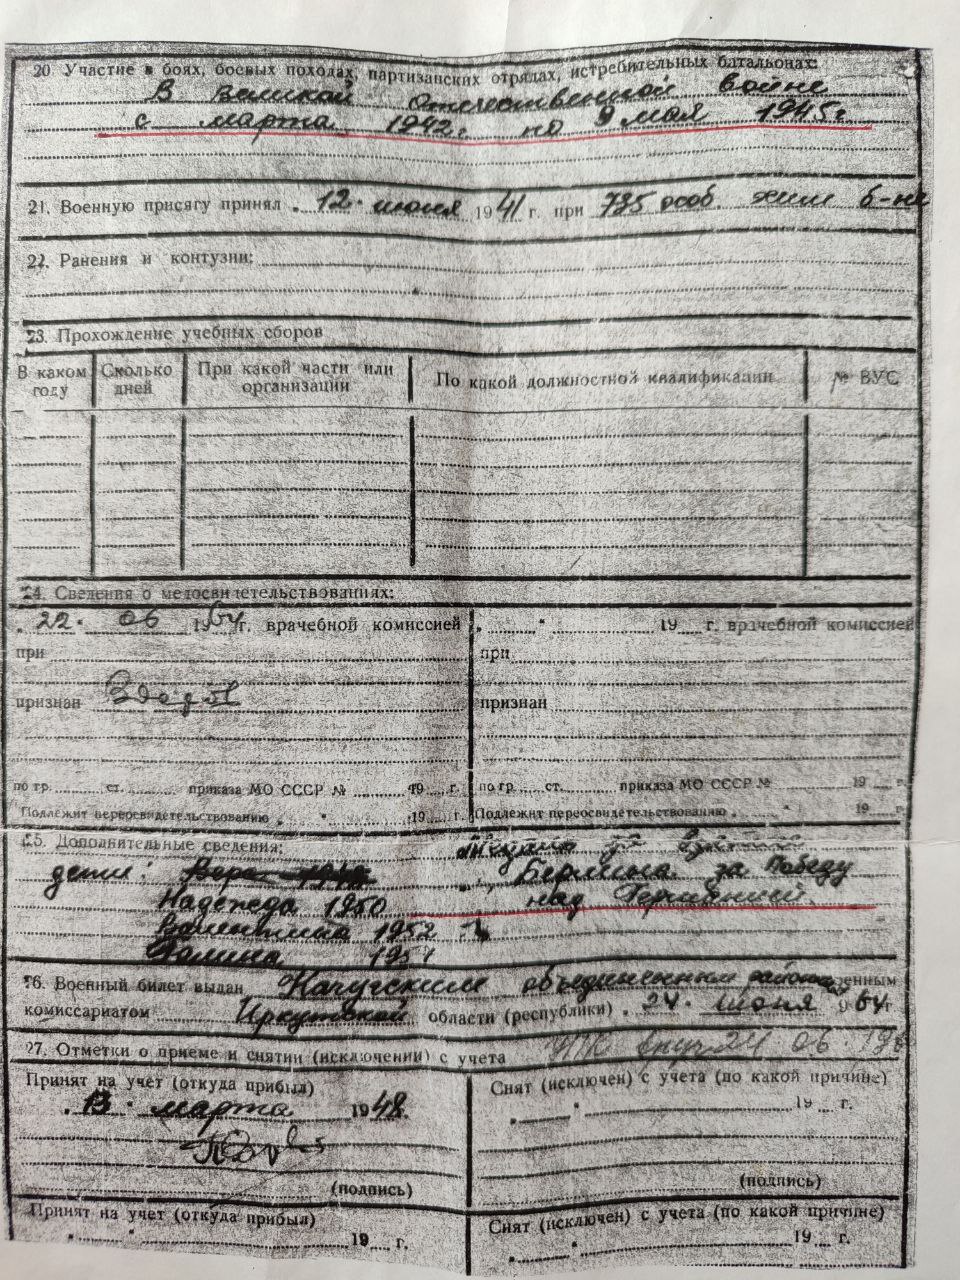 20. Участие в боях, боевых походах, партизанских отрядах, истребительных батальонах:
В Великой Отечественной войне
с марта 1942г. по 9 мая 1945г
21. Военную присягу принял „12" июня 1941 г. при 735 особ. хим б-не
22. Ранения и контузии:
23. Прохождение учебных сборов
В каком году
Сколько дней
При какой части или организации
По какой должностной квалификации
№ ВУС
24. Сведения о медосвидетельствованиях:
„22" 06 1964г. врачебной комиссией
при
признан
по гр. ст. приказа МО СССР № 19 г.
Подлежит переосвидетельствованию „ " 19 г.
„ " 19 г. врачебной комиссией
при
признан
по гр. ст. приказа МО СССР № 19 г.
Подлежит переосвидетельствованию „ " 19 г.
25. Дополнительные сведения:
дети: Вера
Надежда 1950
Валентина 1952
Галина
за взятие
Берлина за Победу
над Германией
26. Военный билет выдан Качугским объединенным районным военным
комиссариатом Иркутской области (республики) „24" июня 1964г
27. Отметки о приеме и снятии (исключении) с учета
Принят на учет (откуда прибыл)
„13" марта 1948
(подпись)
Снят (исключен) с учета (по какой причине)
„ " 19 г.
(подпись)
Принят на учет (откуда прибыл)
„ " 19 г.
Снят (исключен) с учета (по какой причине)
„ " 19 г.